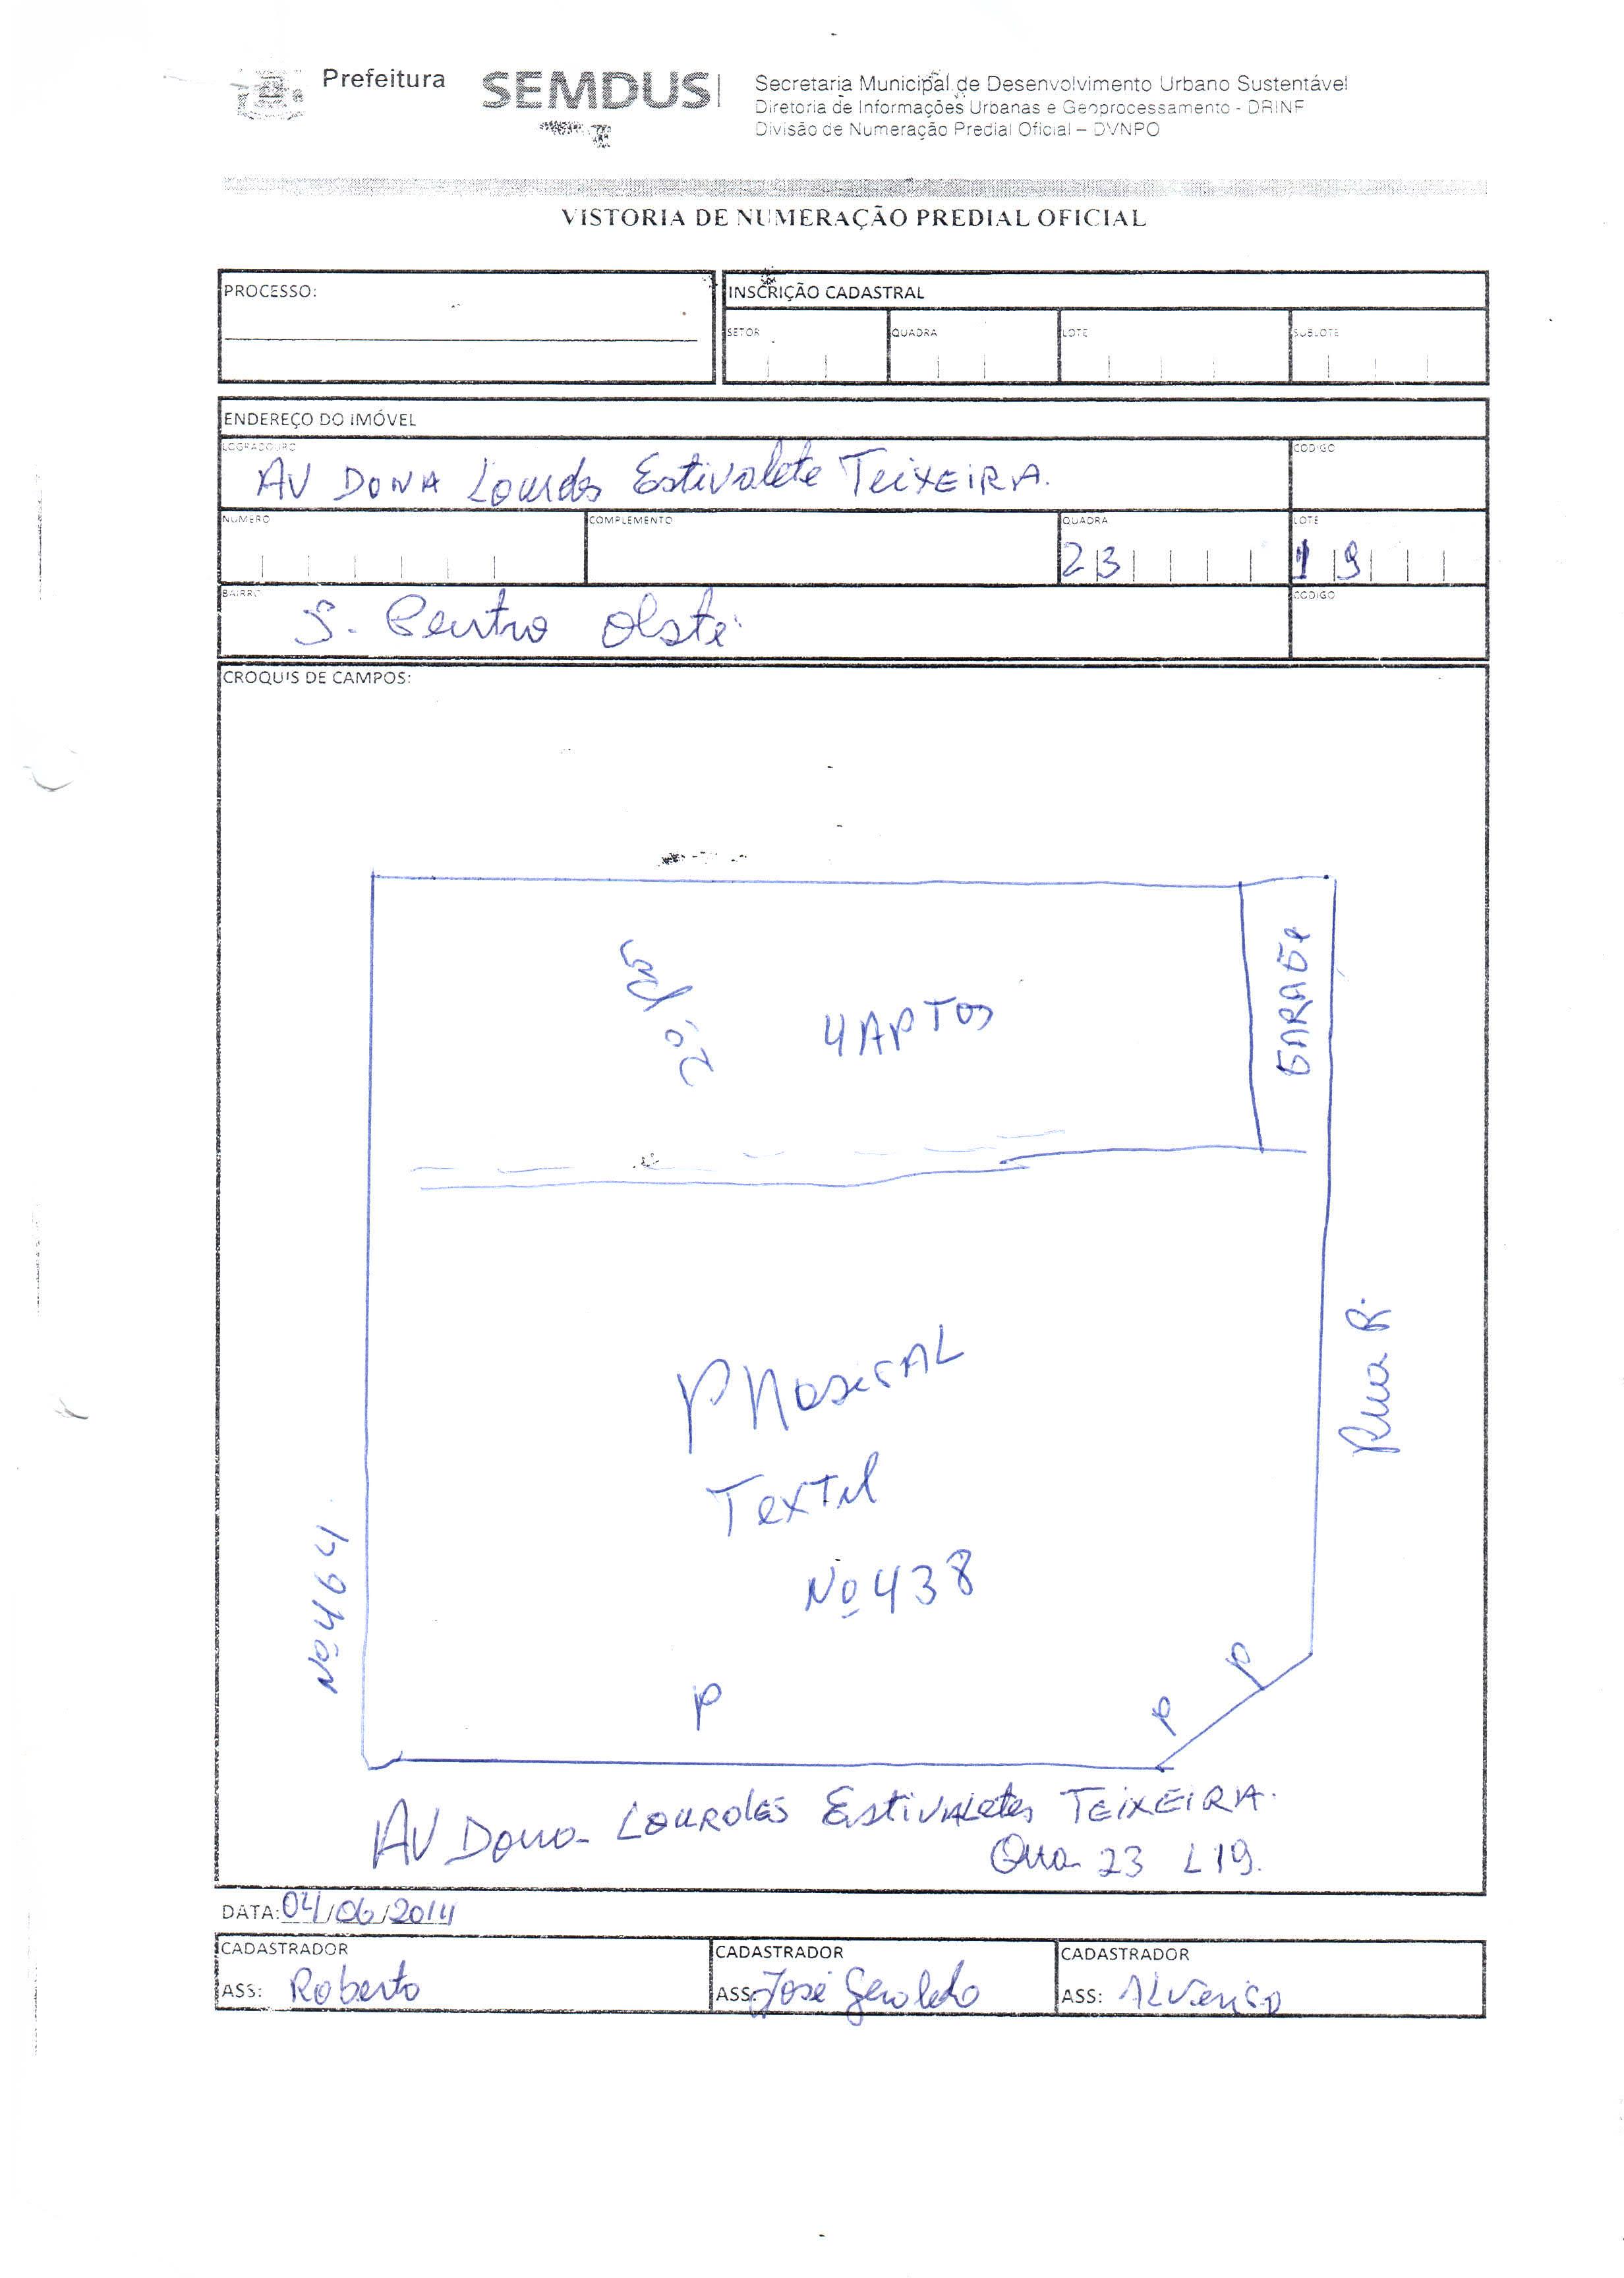 Prefeitura
SEMDUS
Secretaria Municipal de Desenvolvimento Urbano Sustentável
Diretoria de Informações Urbanas e Geoprocessamento - DRINF
Divisão de Numeração Predial Oficial – DVNPO
VISTORIA DE NUMERAÇÃO PREDIAL OFICIAL
PROCESSO:
INSCRIÇÃO CADASTRAL
SETOR QUADRA LOTE SUBLOTE
ENDEREÇO DO IMÓVEL
LOGRADOURO CODIGO
AV DONA Lourdes Estivalete TEIXEIRA.
NUMERO COMPLEMENTO QUADRA LOTE
23 19
BAIRRO CODIGO
S. Centro Oeste
CROQUIS DE CAMPOS:
GARAGEM
2º
4 APTOS
Rua R.
Textil
Nº 438
Nº 464
P
P
P
AV Dona LOURDES Estivaletes TEIXEIRA.
Qua 23 L 19.
DATA: 04/06/2014
CADASTRADOR CADASTRADOR CADASTRADOR
ASS: Roberto ASS: José Geraldo ASS: